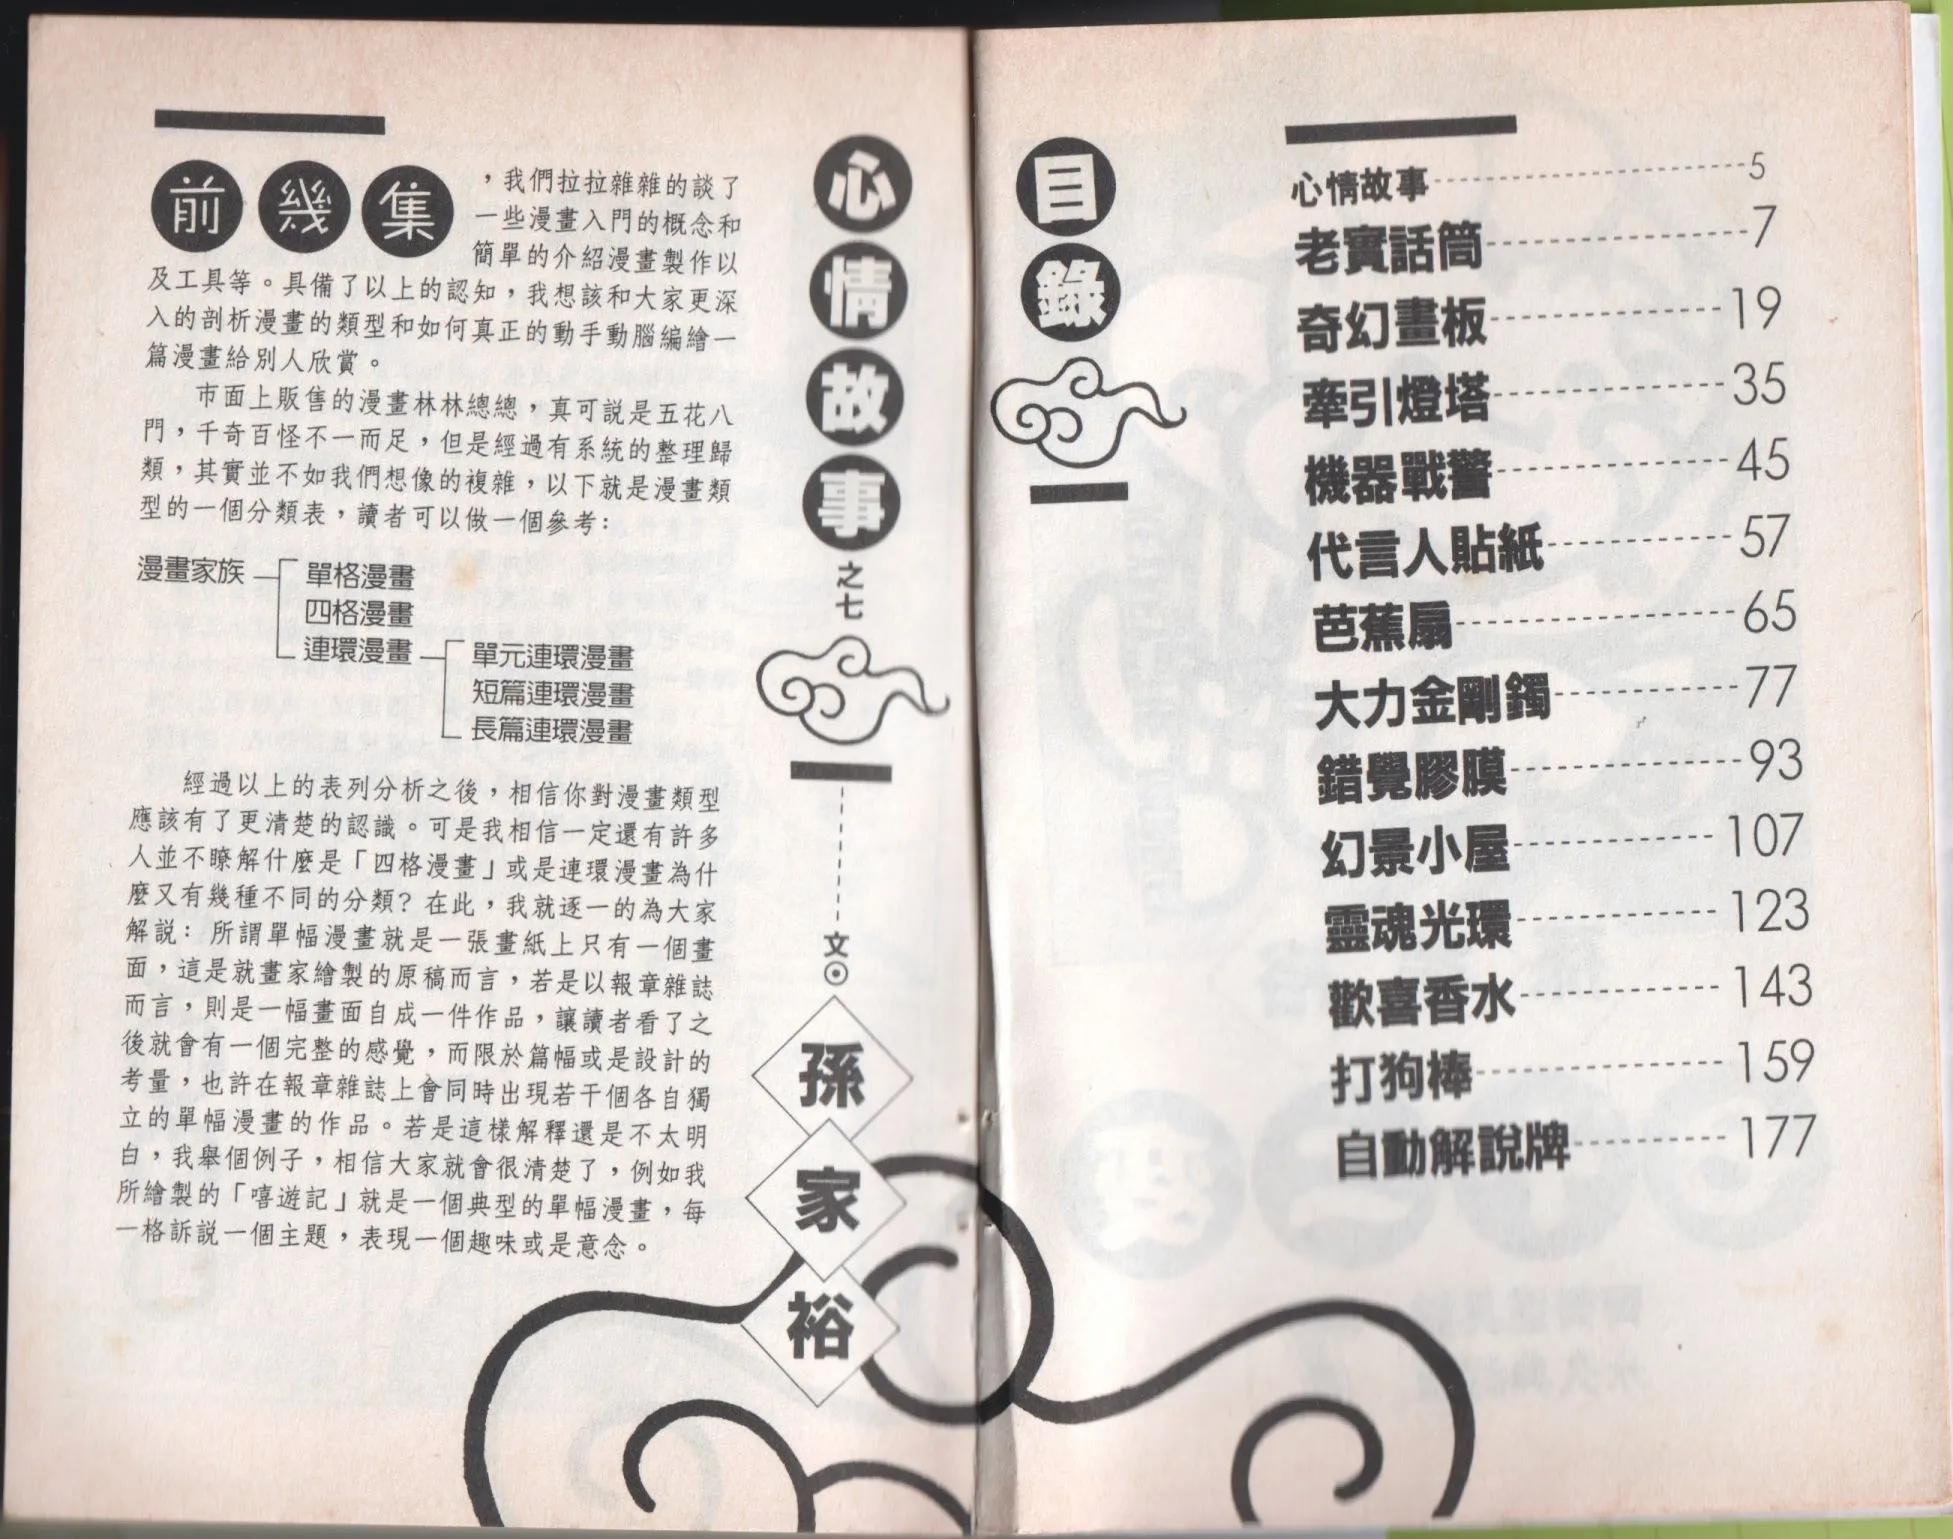 目錄
心情故事 5
老實話筒 7
奇幻畫板 19
牽引燈塔 35
機器戰警 45
代言人貼紙 57
芭蕉扇 65
大力金剛鐲 77
錯覺膠膜 93
幻景小屋 107
靈魂光環 123
歡喜香水 143
打狗棒 159
自動解說牌 177
心情故事之七
文⊙孫家裕
前幾集，我們拉拉雜雜的談了
一些漫畫入門的概念和
簡單的介紹漫畫製作以
及工具等。具備了以上的認知，我想該和大家更深
入的剖析漫畫的類型和如何真正的動手動腦編繪一
篇漫畫給別人欣賞。
市面上販售的漫畫林林總總，真可說是五花八
門，千奇百怪不一而足，但是經過有系統的整理歸
類，其實並不如我們想像的複雜，以下就是漫畫類
型的一個分類表，讀者可以做一個參考：
漫畫家族 單格漫畫
四格漫畫
連環漫畫 單元連環漫畫
短篇連環漫畫
長篇連環漫畫
經過以上的表列分析之後，相信你對漫畫類型
應該有了更清楚的認識。可是我相信一定還有許多
人並不瞭解什麼是「四格漫畫」或是連環漫畫為什
麼又有幾種不同的分類？在此，我就逐一的為大家
解說：所謂單幅漫畫就是一張畫紙上只有一個畫
面，這是就畫家繪製的原稿而言，若是以報章雜誌
而言，則是一幅畫面自成一件作品，讓讀者看了之
後就會有一個完整的感覺，而限於篇幅或是設計的
考量，也許在報章雜誌上會同時出現若干個各自獨
立的單幅漫畫的作品。若是這樣解釋還是不太明
白，我舉個例子，相信大家就會很清楚了，例如我
所繪製的「嘻遊記」就是一個典型的單幅漫畫，每
一格訴說一個主題，表現一個趣味或是意念。